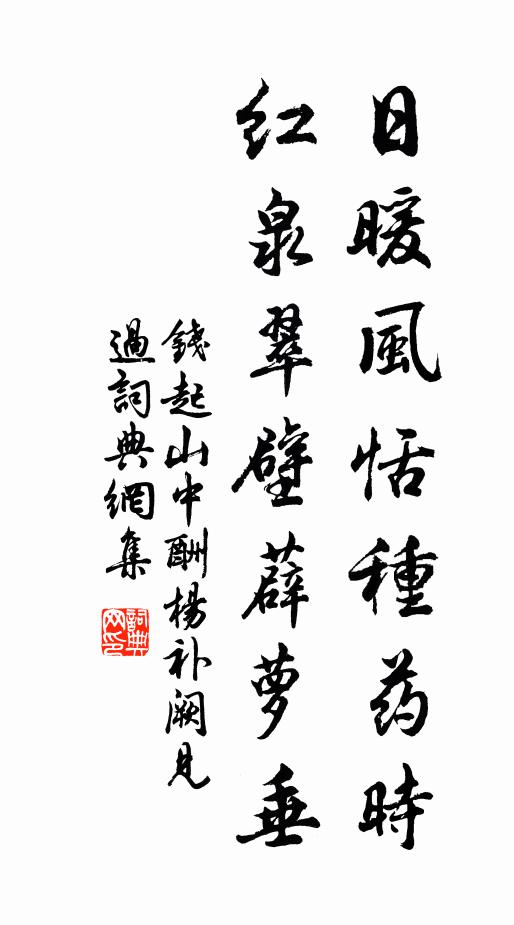 日暖風恬種药時
紅泉翠壁薜萝垂
錢起山中酬楊补阙見
過詞典網集
詞典
网印